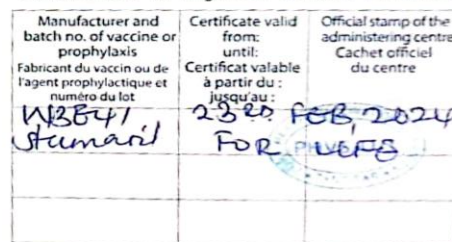 Manufacturer and
batch no. of vaccine or
prophylaxis
Fabricant du vaccin ou de
l'agent prophylactique et
numéro du lot
Certificate valid
from:
until:
Certificat valable
à partir du :
jusqu'au :
Official stamp of the
administering centre
Cachet officiel
du centre
Stamaril
23RD FEB, 2024
FOR